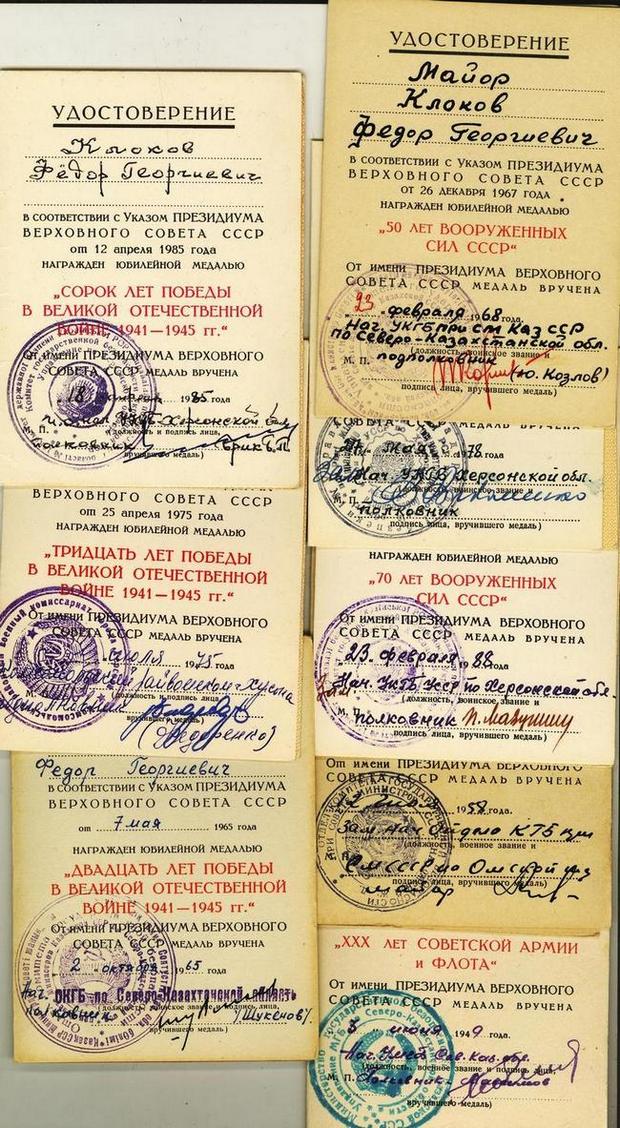 УДОСТОВЕРЕНИЕ
Клоков
Фёдор Георгиевич
в соответствии с Указом ПРЕЗИДИУМА
ВЕРХОВНОГО СОВЕТА СССР
от 12 апреля 1985 года
НАГРАЖДЕН ЮБИЛЕЙНОЙ МЕДАЛЬЮ
„СОРОК ЛЕТ ПОБЕДЫ
В ВЕЛИКОЙ ОТЕЧЕСТВЕННОЙ
ВОЙНЕ 1941—1945 гг.“
От имени ПРЕЗИДИУМА ВЕРХОВНОГО
СОВЕТА СССР МЕДАЛЬ ВРУЧЕНА
18 1985 года
М. П. Херсонской
полковник
вручившего медаль)
ВЕРХОВНОГО СОВЕТА СССР
от 25 апреля 1975 года
НАГРАЖДЕН ЮБИЛЕЙНОЙ МЕДАЛЬЮ
„ТРИДЦАТЬ ЛЕТ ПОБЕДЫ
В ВЕЛИКОЙ ОТЕЧЕСТВЕННОЙ
ВОЙНЕ 1941—1945 гг.“
От имени ПРЕЗИДИУМА ВЕРХОВНОГО
СОВЕТА СССР МЕДАЛЬ ВРУЧЕНА
1975 года
(должность и подпись лица,
вручившего медаль)
(Федоренко)
Федор Георгиевич
в соответствии с Указом ПРЕЗИДИУМА
ВЕРХОВНОГО СОВЕТА СССР
от 7 мая 1965 года
НАГРАЖДЕН ЮБИЛЕЙНОЙ МЕДАЛЬЮ
„ДВАДЦАТЬ ЛЕТ ПОБЕДЫ
В ВЕЛИКОЙ ОТЕЧЕСТВЕННОЙ
ВОЙНЕ 1941—1945 гг.“
От имени ПРЕЗИДИУМА ВЕРХОВНОГО
СОВЕТА СССР МЕДАЛЬ ВРУЧЕНА
2 октября 1965 года
Нач. ОКГБ по Северо-Казахтанской область
полковник (Шукенов)
вручившего медаль)
УДОСТОВЕРЕНИЕ
Майор
Клоков
Федор Георгиевич
в соответствии с Указом ПРЕЗИДИУМА
ВЕРХОВНОГО СОВЕТА СССР
от 26 декабря 1967 года
НАГРАЖДЕН ЮБИЛЕЙНОЙ МЕДАЛЬЮ
„50 ЛЕТ ВООРУЖЕННЫХ
СИЛ СССР“
От имени ПРЕЗИДИУМА ВЕРХОВНОГО
СОВЕТА СССР МЕДАЛЬ ВРУЧЕНА
„23„ февраля 1968 года
Нач. УКГБ при СМ Каз ССР
по Северо-Казахстанской обл.
(должность, воинское звание и
М. П. подполковник (Ю. Козлов)
подпись лица, вручившего медаль)
мая 1978 года
Зам. Нач. УКГБ Херсонской обл.
полковник
подпись лица, вручившего медаль)
НАГРАЖДЕН ЮБИЛЕЙНОЙ МЕДАЛЬЮ
„70 ЛЕТ ВООРУЖЕННЫХ
СИЛ СССР“
От имени ПРЕЗИДИУМА ВЕРХОВНОГО
СОВЕТА СССР МЕДАЛЬ ВРУЧЕНА
„23„ февраля 1988 года
Зам. Нач. УКГБ УССР по Херсонской обл.
(должность, воинское звание и
М. П. полковник
подпись лица, вручившего медаль)
От имени ПРЕЗИДИУМА ВЕРХОВНОГО
СОВЕТА СССР МЕДАЛЬ ВРУЧЕНА
1958 года.
Зам. Нач. КГБ при
(должность, воинское звание и
подпись лица, вручившего медаль)
„XXX ЛЕТ СОВЕТСКОЙ АРМИИ
и ФЛОТА“
От имени ПРЕЗИДИУМА ВЕРХОВНОГО
СОВЕТА СССР МЕДАЛЬ ВРУЧЕНА
1949 года.
(должность, военное звание и подпись лица,
М. П. Полковник
вручившего медаль)